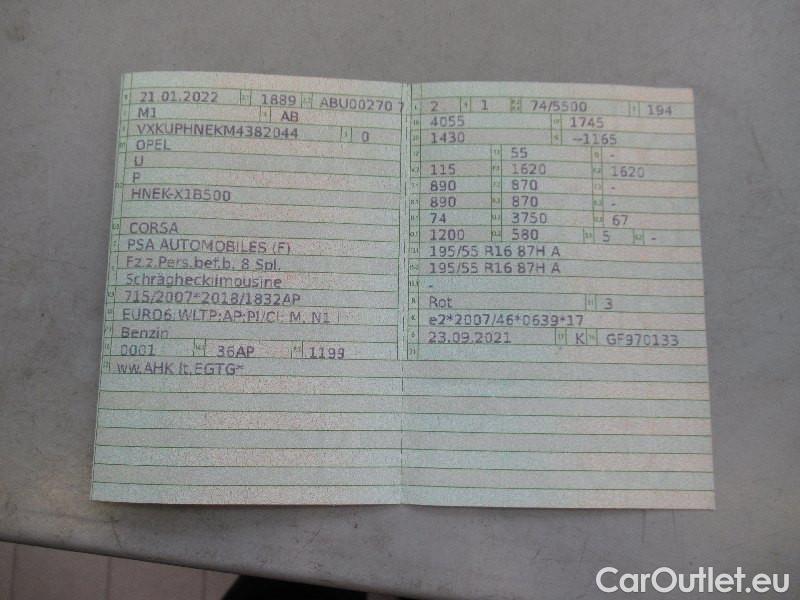 21.01.2022 1889 ABU00270 7
M1 AB
VXKUPHNEKM4382044 0
OPEL
U
P
HNEK-X1B500
CORSA
PSA AUTOMOBILES (F)
Fz.z.Pers.bef.b. 8 Spl.
Schräghecklimousine
715/2007*2018/1832AP
EURO6;WLTP;AP;PI/CI; M, N1 I
Benzin
0001 36AP 1199
ww.AHK lt.EGTG*
2 1 74/5500 194
4055 1745
1430 —1165
55 -
115 1620 1620
890 870 -
890 870 -
74 3750 67
1200 580 5 -
195/55 R16 87H A
195/55 R16 87H A
-
Rot 3
e2*2007/46*0639*17
23.09.2021 K GF970133
CarOutlet.eu